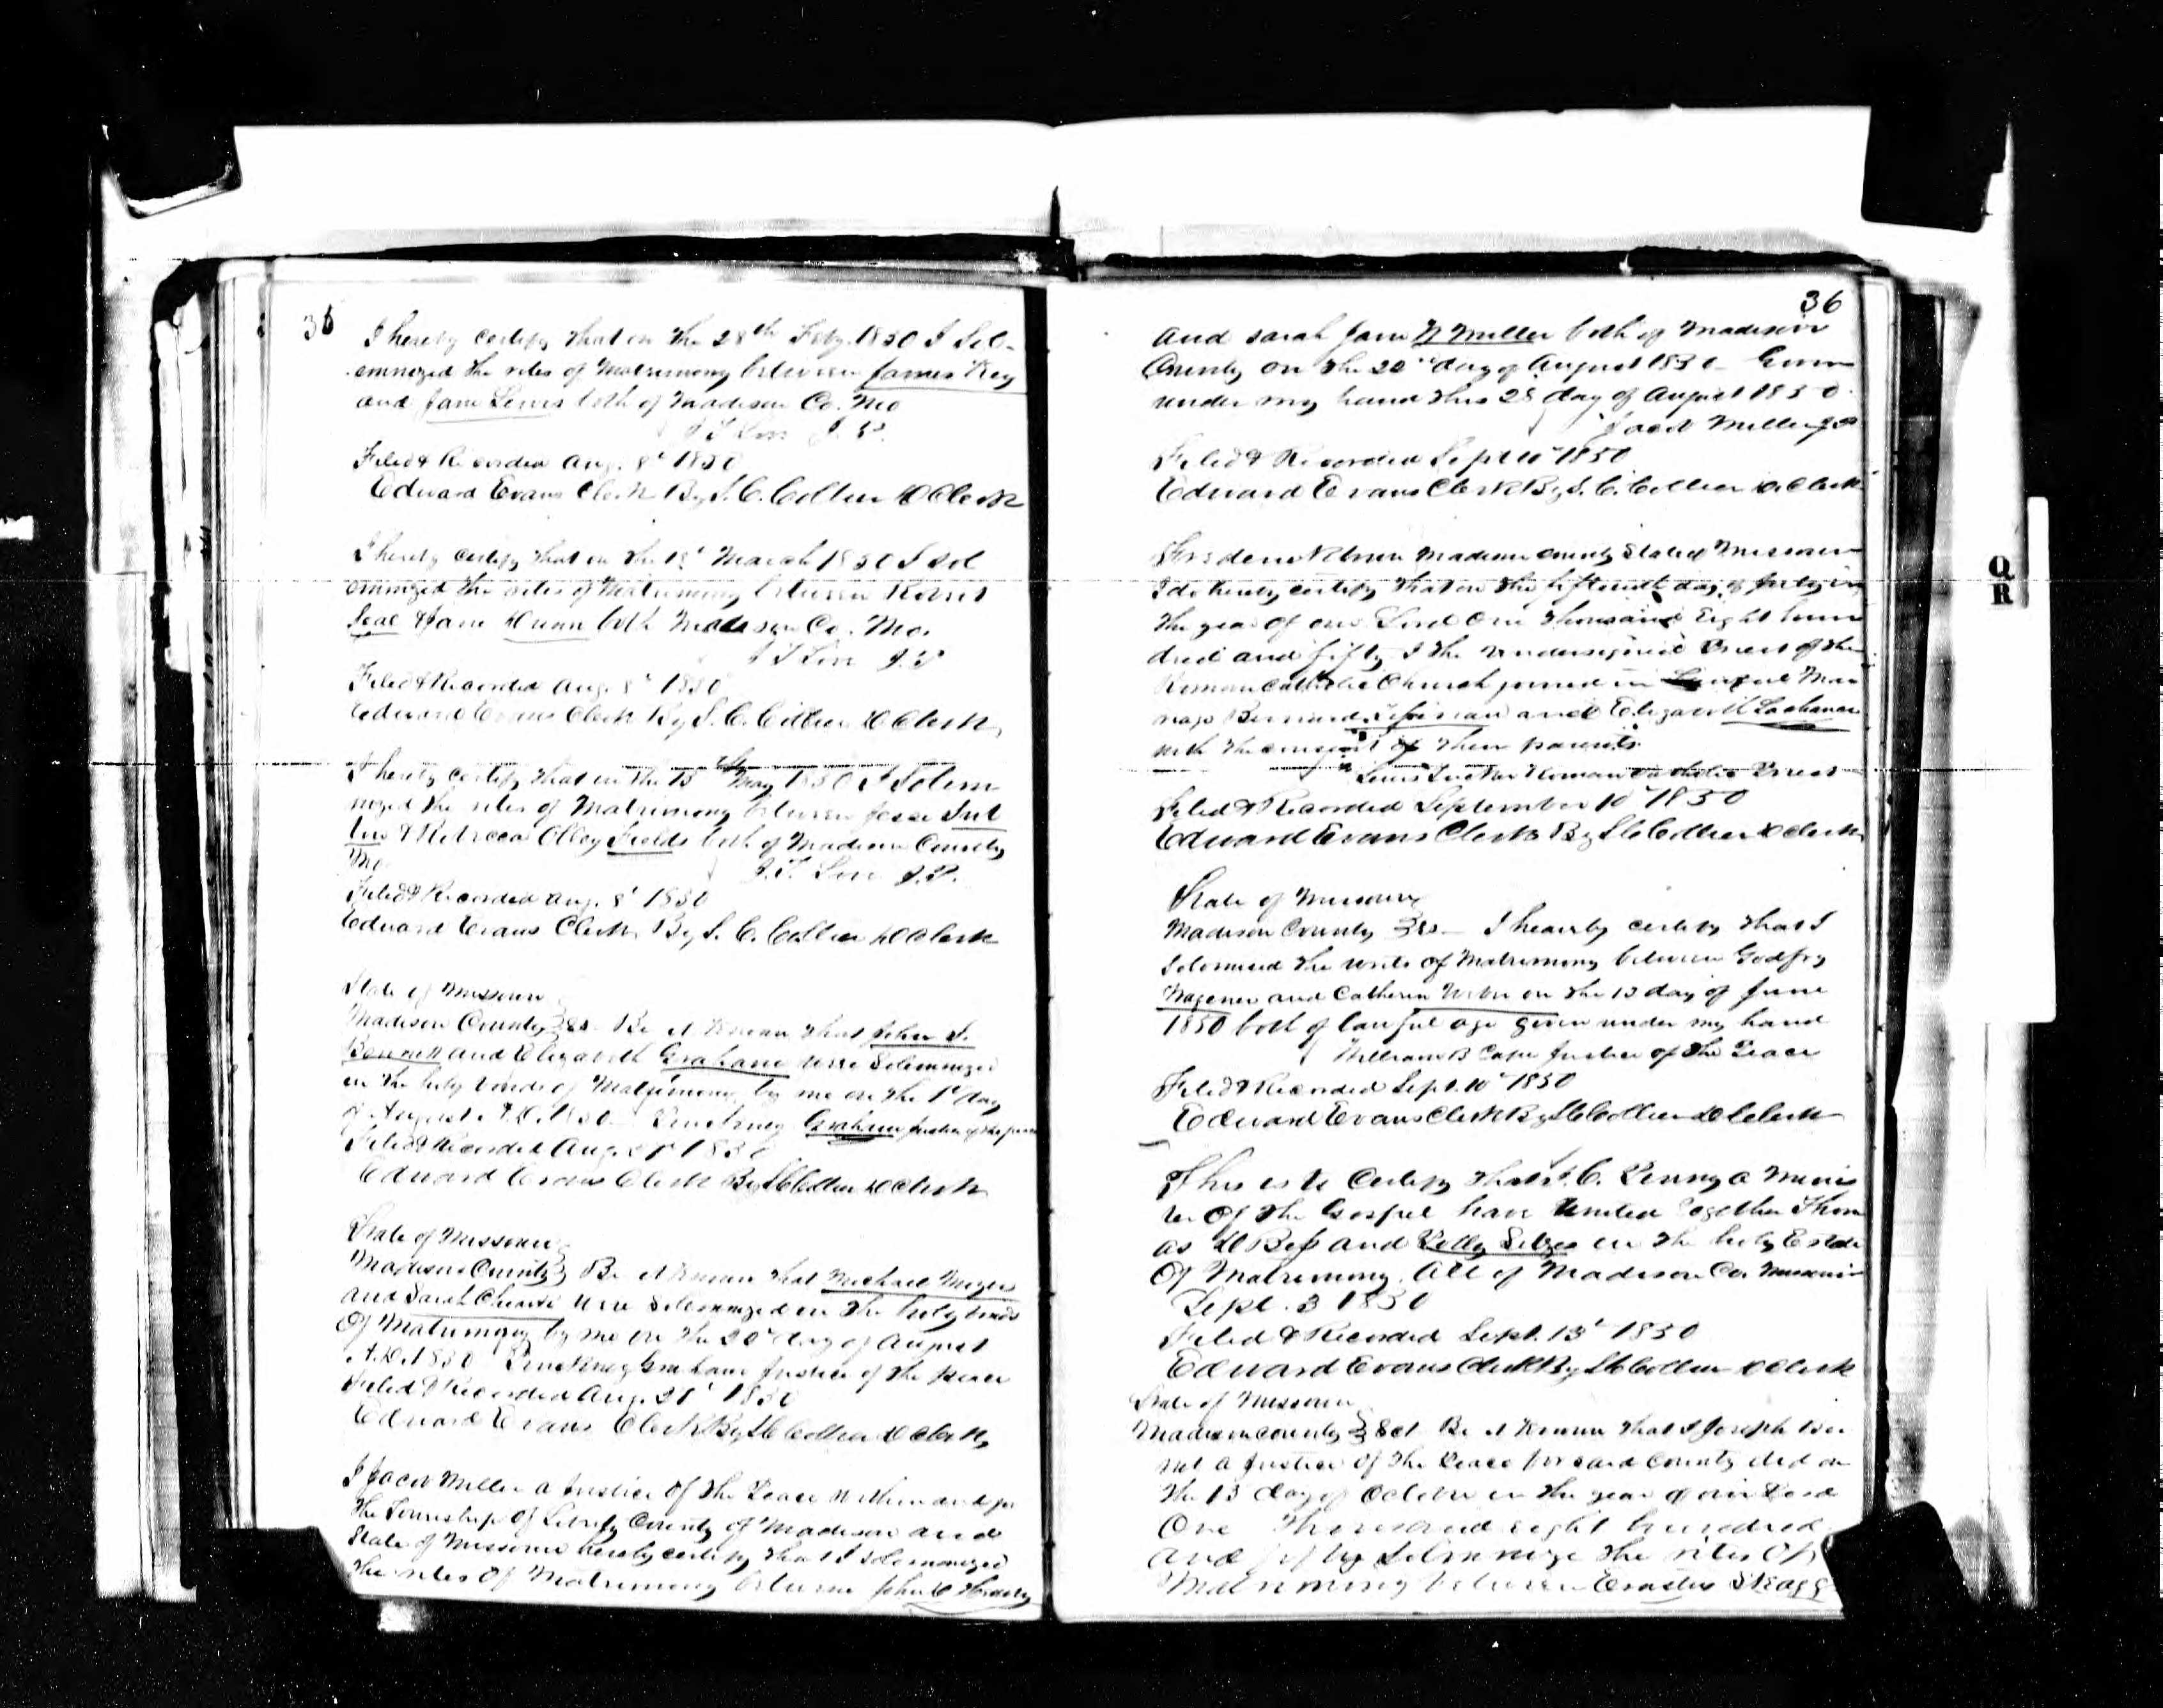 36
I hereby certify that on the 28th Feby. 1850 I Sol-
emnized the rites of Matrimony between James Key
and Jane Lewis both of Madison Co. Mo
J. P.
Filed & Recorded Aug. 8" 1850
Edward Evans Clerk By S. C. Collier D Clerk
I hereby certify that on the March 1850 I Sol
emnized the rites of Matrimony between
Seal & Jane Dunn both Madison Co. Mo.
J. P.
Filed & Recorded Aug. 8" 1850
Edward Evans Clerk By S. C. Collier D Clerk
I hereby certify that on the 15th May 1850 I Solem
nized the rites of Matrimony between Jesse
& Rebecca Olley Fields both of Madison County
Mo.
J. P.
Filed & Recorded Aug. 8" 1850
Edward Evans Clerk By S. C. Collier D Clerk
State of Missouri
Madison County Be it known that John S.
Bennett and Elizabeth Grahame were Solemnized
in the holy bonds of Matrimony by me on the 1st day
of August A.D. 1850 Pinckney Graham Justice of the peace
Filed & Recorded Aug. 21" 1850
Edward Evans Clerk By S C Collier D Clerk
State of Missouri
Madison County Be it known that Michael Moyers
and Sarah were Solemnized in the holy bonds
Of Matrimony by me on the 20" day of August
A.D. 1850 Pinckney Graham Justice of the peace
Filed & Recorded Aug. 21" 1850
Edward Evans Clerk By S C Collier D Clerk
I Jacob Miller a Justice Of the Peace within and for
the Township of Liberty County of Madison and
State of Missouri hereby certify that I solemonized
the rites Of Matrimony between John
36
and Sarah Jane N Miller both of Madison
County on the 22" day of August 1850 Given
under my hand this 28 day of August 1850
Jacob Miller J P
Filed & Recorded Sept 10" 1850
Edward Evans Clerk By S. C. Collier D. Clerk
Madison County State of Missouri
I do hereby certify that on the fifteenth day of July in
the year of our Lord One thousand Eight hun
dred and fifty I the undersigned Priest of the
Roman Catholic Church joined in Lawful Mar
riage Bernard and Elizabeth Lachance
with the consent of their parents
Lewis Roman Catholic Priest
Filed & Recorded September 10" 1850
Edward Evans Clerk By S C Collier D Clerk
State of Missouri
Madison County ss I hearby certify that I
Solomised the writs of Matrimony between Godfrey
Wagener and Catherin on the 13 day of June
1850 both of lawful age given under my hand
William B Justice of the Peace
Filed & Recorded Sept. 10" 1850
Edward Evans Clerk By S C Collier D Clerk
This is to Certify that C. Penny a Minis
ter Of the Gospel have United Together Thom
as and in the holy Estate
Of Matrimony. All of Madison Co. Missouri
Sept. 3 1850
Filed & Recorded Sept. 13" 1850
Edward Evans Clerk By S C Collier D Clerk
State of Missouri
Madison County Sct Be it Known that I Joseph Ben
net a Justice Of the Peace for said County did on
the 13 day of October in the year of our Lord
One thousand eight hundred
and fifty Solemnize the rites Of
Matrimony between Erastus Skagg
Q
R